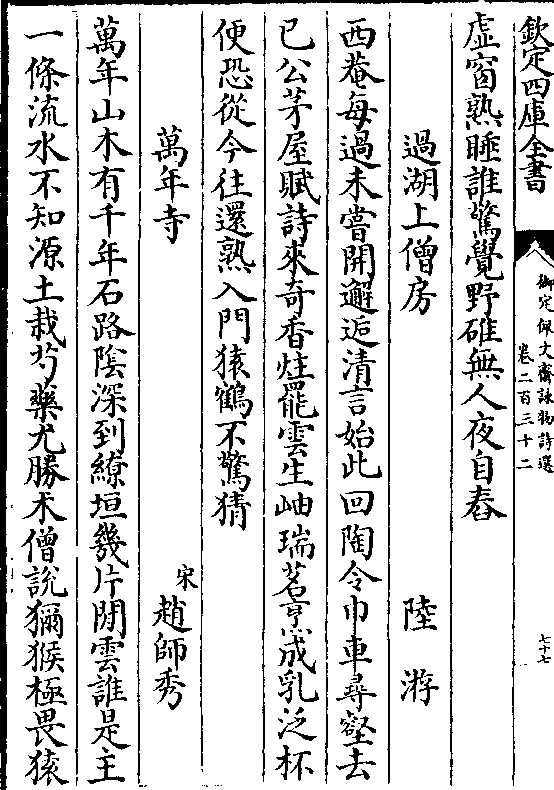 欽定四庫全書
御定佩文齋詠物詩選
卷二百三十二
七十七
虛窗熟睡誰驚覺野碓無人夜自舂
過湖上僧房　陸游
西菴每過未嘗開邂逅清言始此回陶令巾車尋壑去
已公茅屋賦詩來奇香炷罷雲生岫瑞茗烹成乳泛杯
便恐從今往還熟入門猿鶴不驚猜
萬年寺　宋趙師秀
萬年山木有千年石路陰深到繚垣幾片閒雲誰是主
一條流水不知源土栽芍藥尤勝朮僧說獼猴極畏猿